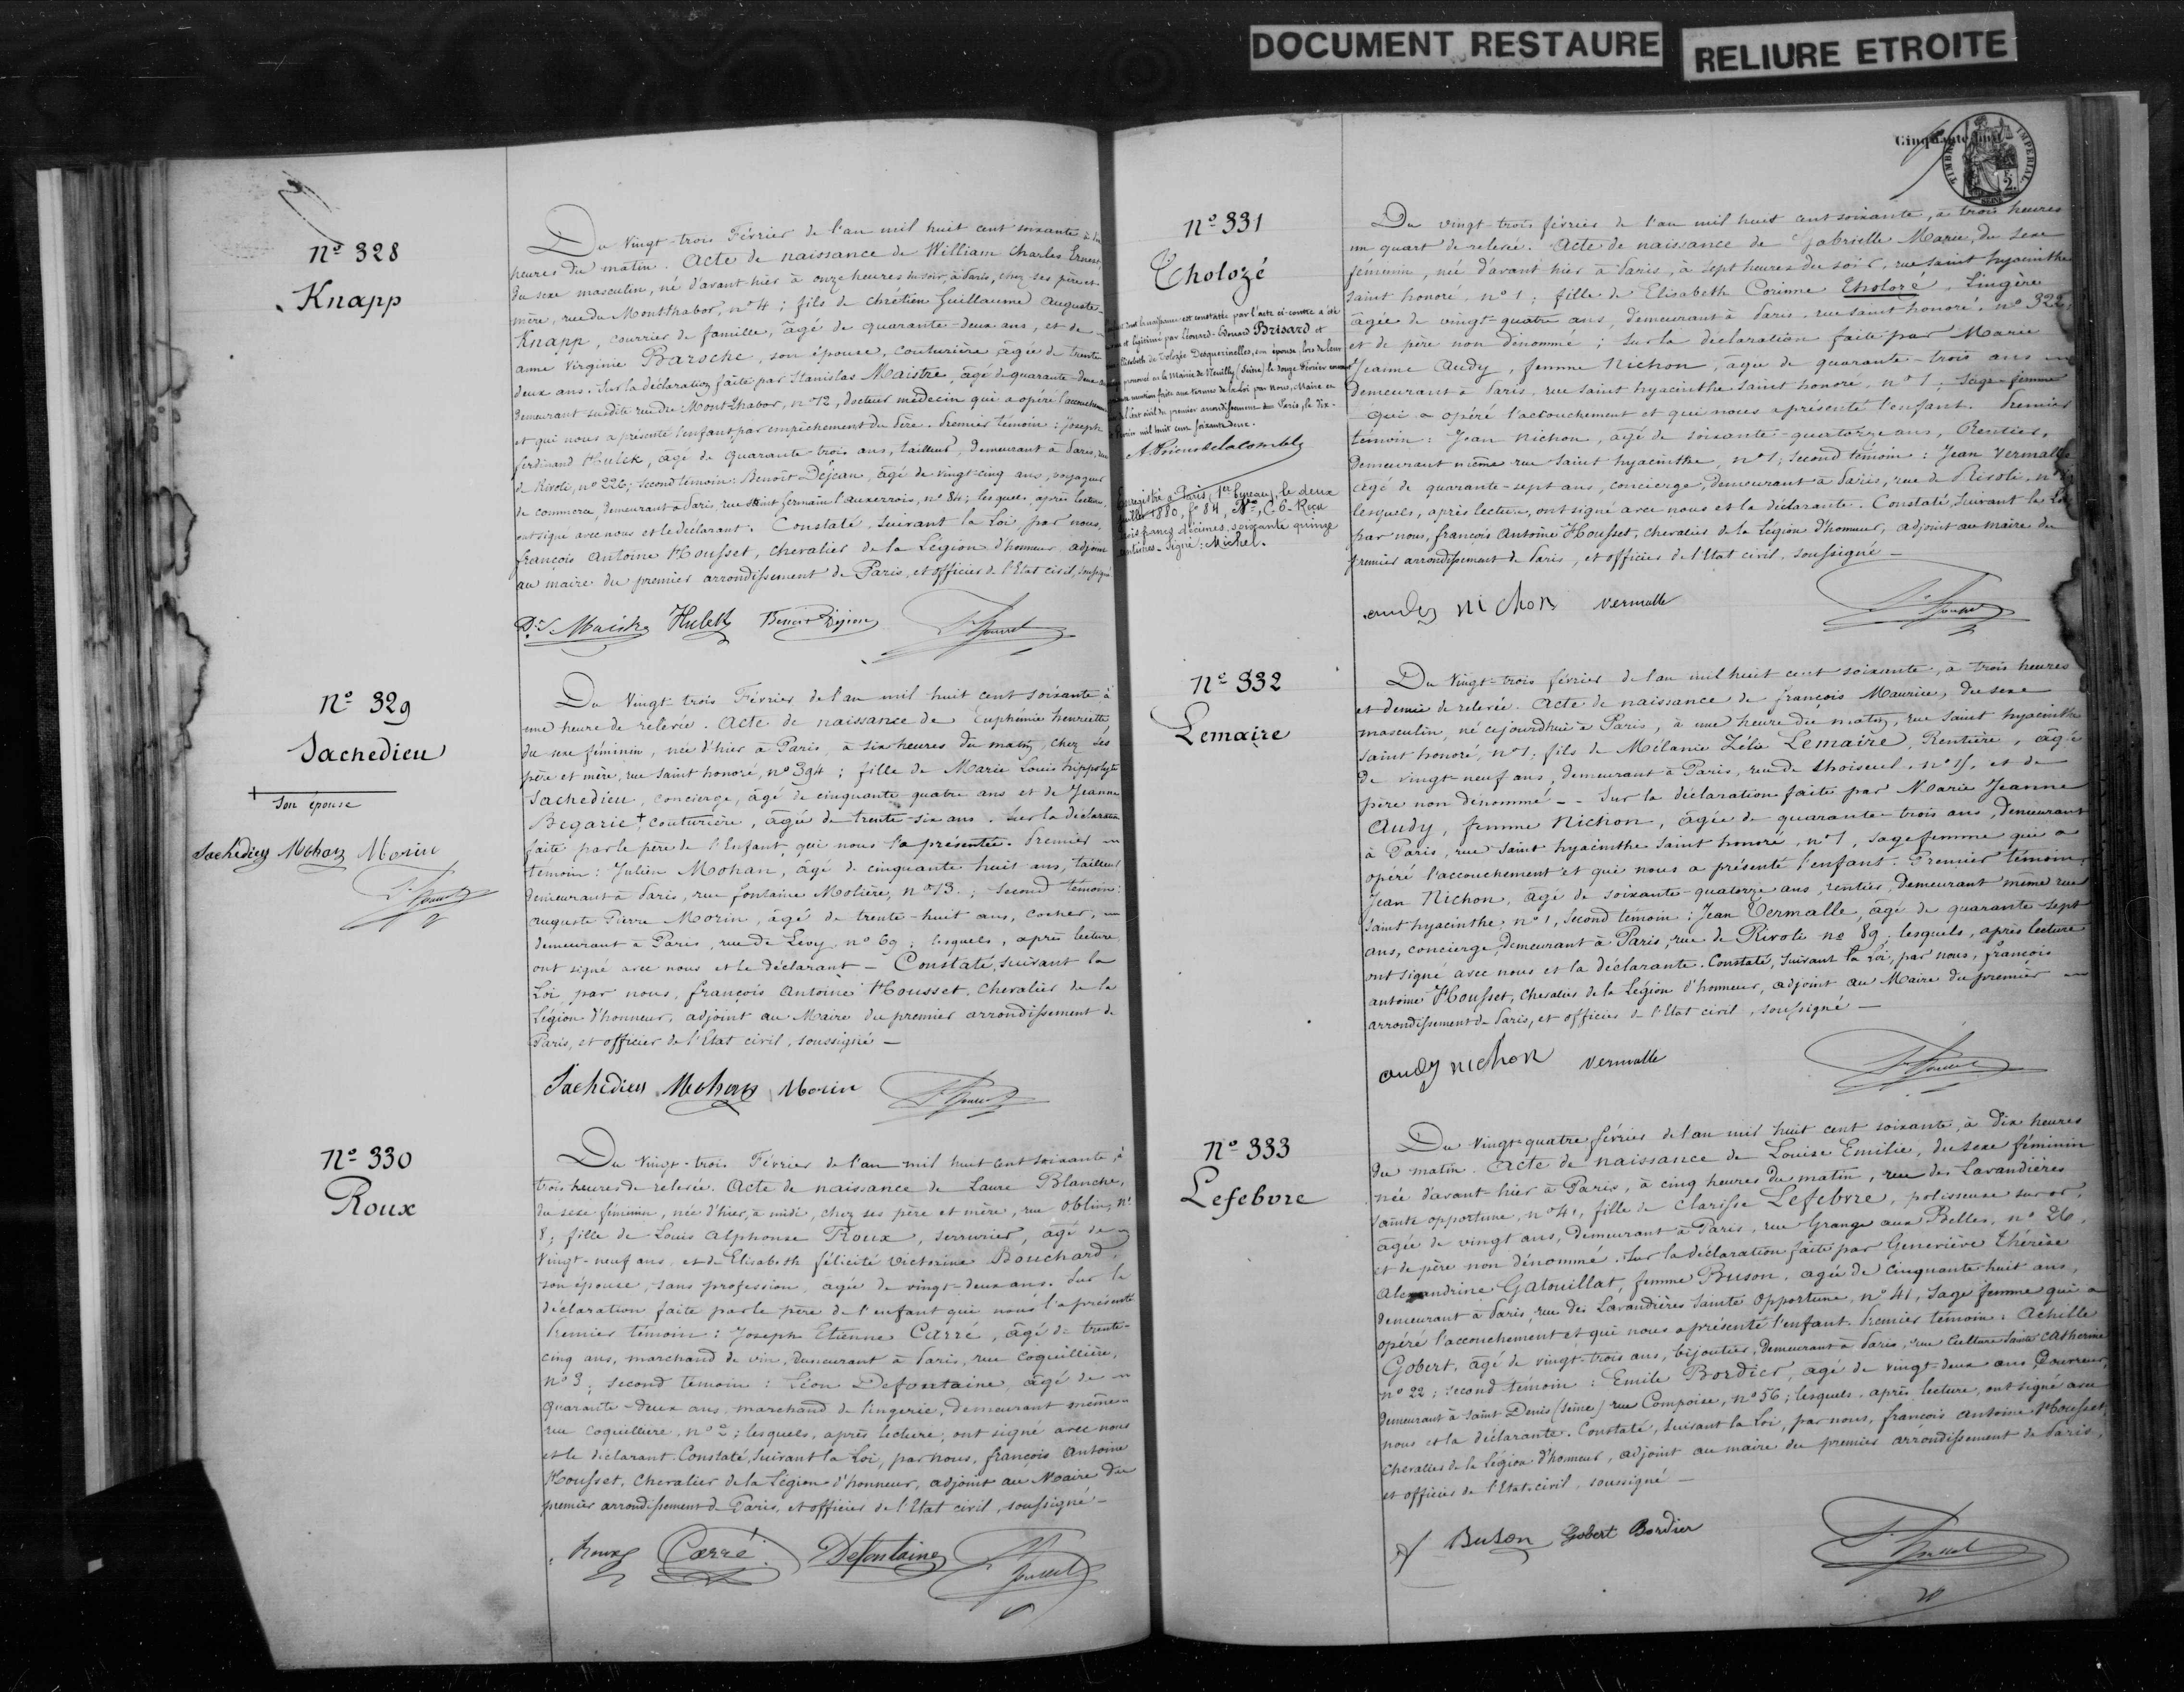 DOCUMENT RESTAURE
RELIURE ETROITE
Nº 328
Knapp
Du Vingt-trois Février de l'an mil huit cent soixante à
heures du matin. Acte de naissance de William Charles Ernest,
du sexe masculin, né d'avant hier à onze heures du soir, à Paris, chez ses père et
mère, rue du Mont-Thabor, nº 4; fils de Chrétien Guillaume Auguste
Knapp, courrier de famille, âgé de quarante-deux ans, et de
Anne Virginie Baroche, son épouse, couturière, âgée de trente
deux ans. Sur la déclaration faite par Stanislas Maistre, âgé de quarante-deux
demeurant susdite rue du Mont-Thabor, nº 12, docteur médecin qui a opéré l'accouchement
et qui nous a présenté l'enfant, par empêchement du Père. Premier témoin: Joseph
ferdinand Hulek, âgé de quarante-trois ans, tailleur, demeurant à Paris, rue
de Rivoli, nº 226; second témoin: Benoît Déjean, âgé de vingt-cinq ans, voyageur
de commerce, demeurant à Paris, rue Saint Germain l'Auxerrois, nº 84; lesquels, après lecture,
ont signé avec nous et le déclarant. Constaté, suivant la Loi, par nous,
françois Antoine Housset, chevalier de la Légion d'honneur, adjoint
au maire du premier arrondissement de Paris, et officier de l'Etat civil, soussigné
Dr S. Maistre Hulek Benoit Déjean
Nº 329
Sachedieu
+ son épouse
Sachedieu Mohan Morin
Du Vingt-trois Février de l'an mil huit cent soixante à
une heure de relevée. Acte de naissance de Euphémie henriette,
du sexe féminin, née d'hier à Paris, à six heures du matin, chez ses
père et mère, rue saint honoré, nº 394; fille de Marie Louis hippolyte
Sachedieu, concierge, âgé de cinquante quatre ans et de Jeanne
Begarie + couturière, âgée de trente-six ans. Sur la déclaration
faite par le père de l'Enfant qui nous l'a présentée. Premier
témoin: Julien Mohan, âgé de cinquante huit ans, tailleur
demeurant à Paris, rue fontaine Molière, nº 13.; second témoin:
auguste Pierre Morin, âgé de trente-huit ans, cocher,
demeurant à Paris, rue de Lévy, nº 69; lesquels, après lecture
ont signé avec nous et le déclarant - Constaté, suivant la
Loi, par nous, françois Antoine Housset, chevalier de la
Légion d'honneur, adjoint au Maire du premier arrondissement de
Paris, et officier de l'Etat civil, soussigné -
Sachedieu Mohan Morin
Nº 330
Roux
Du Vingt-trois Février de l'an mil huit cent soixante, à
trois heures de relevée. Acte de naissance de Laure Blanche,
du sexe féminin, née d'hier, à midi, chez ses père et mère, rue Oblin, nº
8; fille de Louis Alphonse Roux, serrurier, âgé de
Vingt-neuf ans, et de Elisabeth félicité Victorine Bouchard,
son épouse, sans profession, âgée de vingt-deux ans. Sur la
déclaration faite par le père de l'enfant qui nous l'a présenté
Premier témoin: Joseph Etienne Carré, âgé de trente-
cinq ans, marchand de vin, demeurant à Paris, rue Coquillière,
nº 3; second témoin: Léon Defontaine, âgé de
quarante-deux ans, marchand de lingerie, demeurant même
rue Coquillière, nº 2; lesquels, après lecture, ont signé avec nous
et le déclarant. Constaté, suivant la Loi, par nous, françois Antoine
Housset, Chevalier de la Légion d'honneur, adjoint au Maire du
premier arrondissement de Paris, et officier de l'Etat civil, soussigné -
Roux Carré Defontaine
TIMBRE IMPERIAL
2.
SEINE
Nº 331
Tholozé
dont la naissance est constatée par l'acte ci-contre a été
et légitimé par Léonard-Edouard Brisard et
Elisabeth de Tolozée Desquerinelles, son épouse, lors de leur
prononcé en la Mairie de Neuilly (Seine) le douze Février
mention faite aux termes de la Loi par nous, Maire
de l'état civil du premier arrondissement de Paris, le dix-
Février mil huit cent soixante deux.
Enregistré à Paris, 1er bureau, le deux
Juillet 1880, fº 84, Vº, C 6. Reçu
trois francs décimes, soixante quinze
centimes - signé: Michel.
Du vingt-trois février de l'an mil huit cent soixante, à trois heures
un quart de relevée. Acte de naissance de Gabrielle Marie, du sexe
féminin, née d'avant hier à Paris, à sept heures du soir, rue saint hyacinthe
saint honoré, nº 1; fille de Elisabeth Corinne Tholozé, Lingère
âgée de vingt-quatre ans, demeurant à Paris, rue saint honoré, nº 322,
et de père non dénommé; sur la déclaration faite par Marie
Jeanne Audy, femme Nichon, âgée de quarante-trois ans
demeurant à Paris, rue saint hyacinthe saint honoré, nº 1, sage-femme
qui a opéré l'accouchement et qui nous a présenté l'enfant. Premier
témoin: Jean Nichon, âgé de soixante-quatorze ans, Rentier,
demeurant même rue saint hyacinthe, nº 1; second témoin: Jean Vermalle
âgé de quarante-sept ans, concierge, demeurant à Paris, rue de Rivoli, nº
lesquels, après lecture, ont signé avec nous et la déclarante. Constaté, suivant la Loi
par nous, françois Antoine Housset, chevalier de la Légion d'honneur, adjoint au maire du
premier arrondissement de Paris, et officier de l'Etat civil, soussigné -
audy nichon vermalle
Nº 332
Lemaire
Du Vingt-trois février de l'an mil huit cent soixante, à trois heures
et demie de relevée. Acte de naissance de françois Maurice, du sexe
masculin, né cejourd'hui à Paris, à une heure du matin, rue saint hyacinthe
saint honoré, nº 1; fils de Mélanie Zélie Lemaire, Rentière, âgée
de vingt-neuf ans, demeurant à Paris, rue de Choiseul, nº 15, et de
père non dénommé - - Sur la déclaration faite par Marie Jeanne
Audy, femme Nichon, âgée de quarante-trois ans, demeurant
à Paris, rue saint hyacinthe saint honoré, nº 1, sage femme qui a
opéré l'accouchement et qui nous a présenté l'enfant. Premier témoin:
Jean Nichon, âgé de soixante-quatorze ans, rentier, demeurant même rue
saint hyacinthe nº 1, second témoin: Jean Vermalle, âgé de quarante-sept
ans, concierge, demeurant à Paris, rue de Rivoli nº 89; lesquels, après lecture
ont signé avec nous et la déclarante. Constaté, suivant la Loi, par nous, françois
antoine Housset, chevalier de la Légion d'honneur, adjoint au Maire du premier
arrondissement de Paris, et officier de l'Etat civil, soussigné -
audy nichon vermalle
Nº 333
Lefebvre
Du Vingt-quatre février de l'an mil huit cent soixante, à Dix heures
du matin. Acte de naissance de Louise Emilie, du sexe féminin
née d'avant-hier à Paris, à cinq heures du matin, rue des Lavandières
sainte opportune, nº 41, fille de Clarisse Lefebvre, polisseuse sur or,
âgée de vingt ans, demeurant à Paris, rue Grange aux Belles, nº 26,
et de père non dénommé. Sur la déclaration faite par Geneviève Thérèse
Alexandrine Gatouillat, femme Buson, âgée de cinquante huit ans,
demeurant à Paris, rue des Lavandières Sainte Opportune, nº 41, Sage femme qui a
opéré l'accouchement et qui nous a présenté l'enfant. Premier témoin: Achille
Gobert, âgé de vingt-trois ans, bijoutier, demeurant à Paris, rue Culture Sainte Catherine
nº 22; second témoin: Emile Bordier, âgé de vingt-deux ans, Couvreur,
demeurant à Saint-Denis (Seine) rue Compoise, nº 56; lesquels, après lecture, ont signé avec
nous et la déclarante. Constaté, suivant la Loi, par nous, françois Antoine Housset,
Chevalier de la Légion d'honneur, adjoint au maire du premier arrondissement de Paris,
et officier de l'Etat-civil, soussigné -
Buson Gobert Bordier